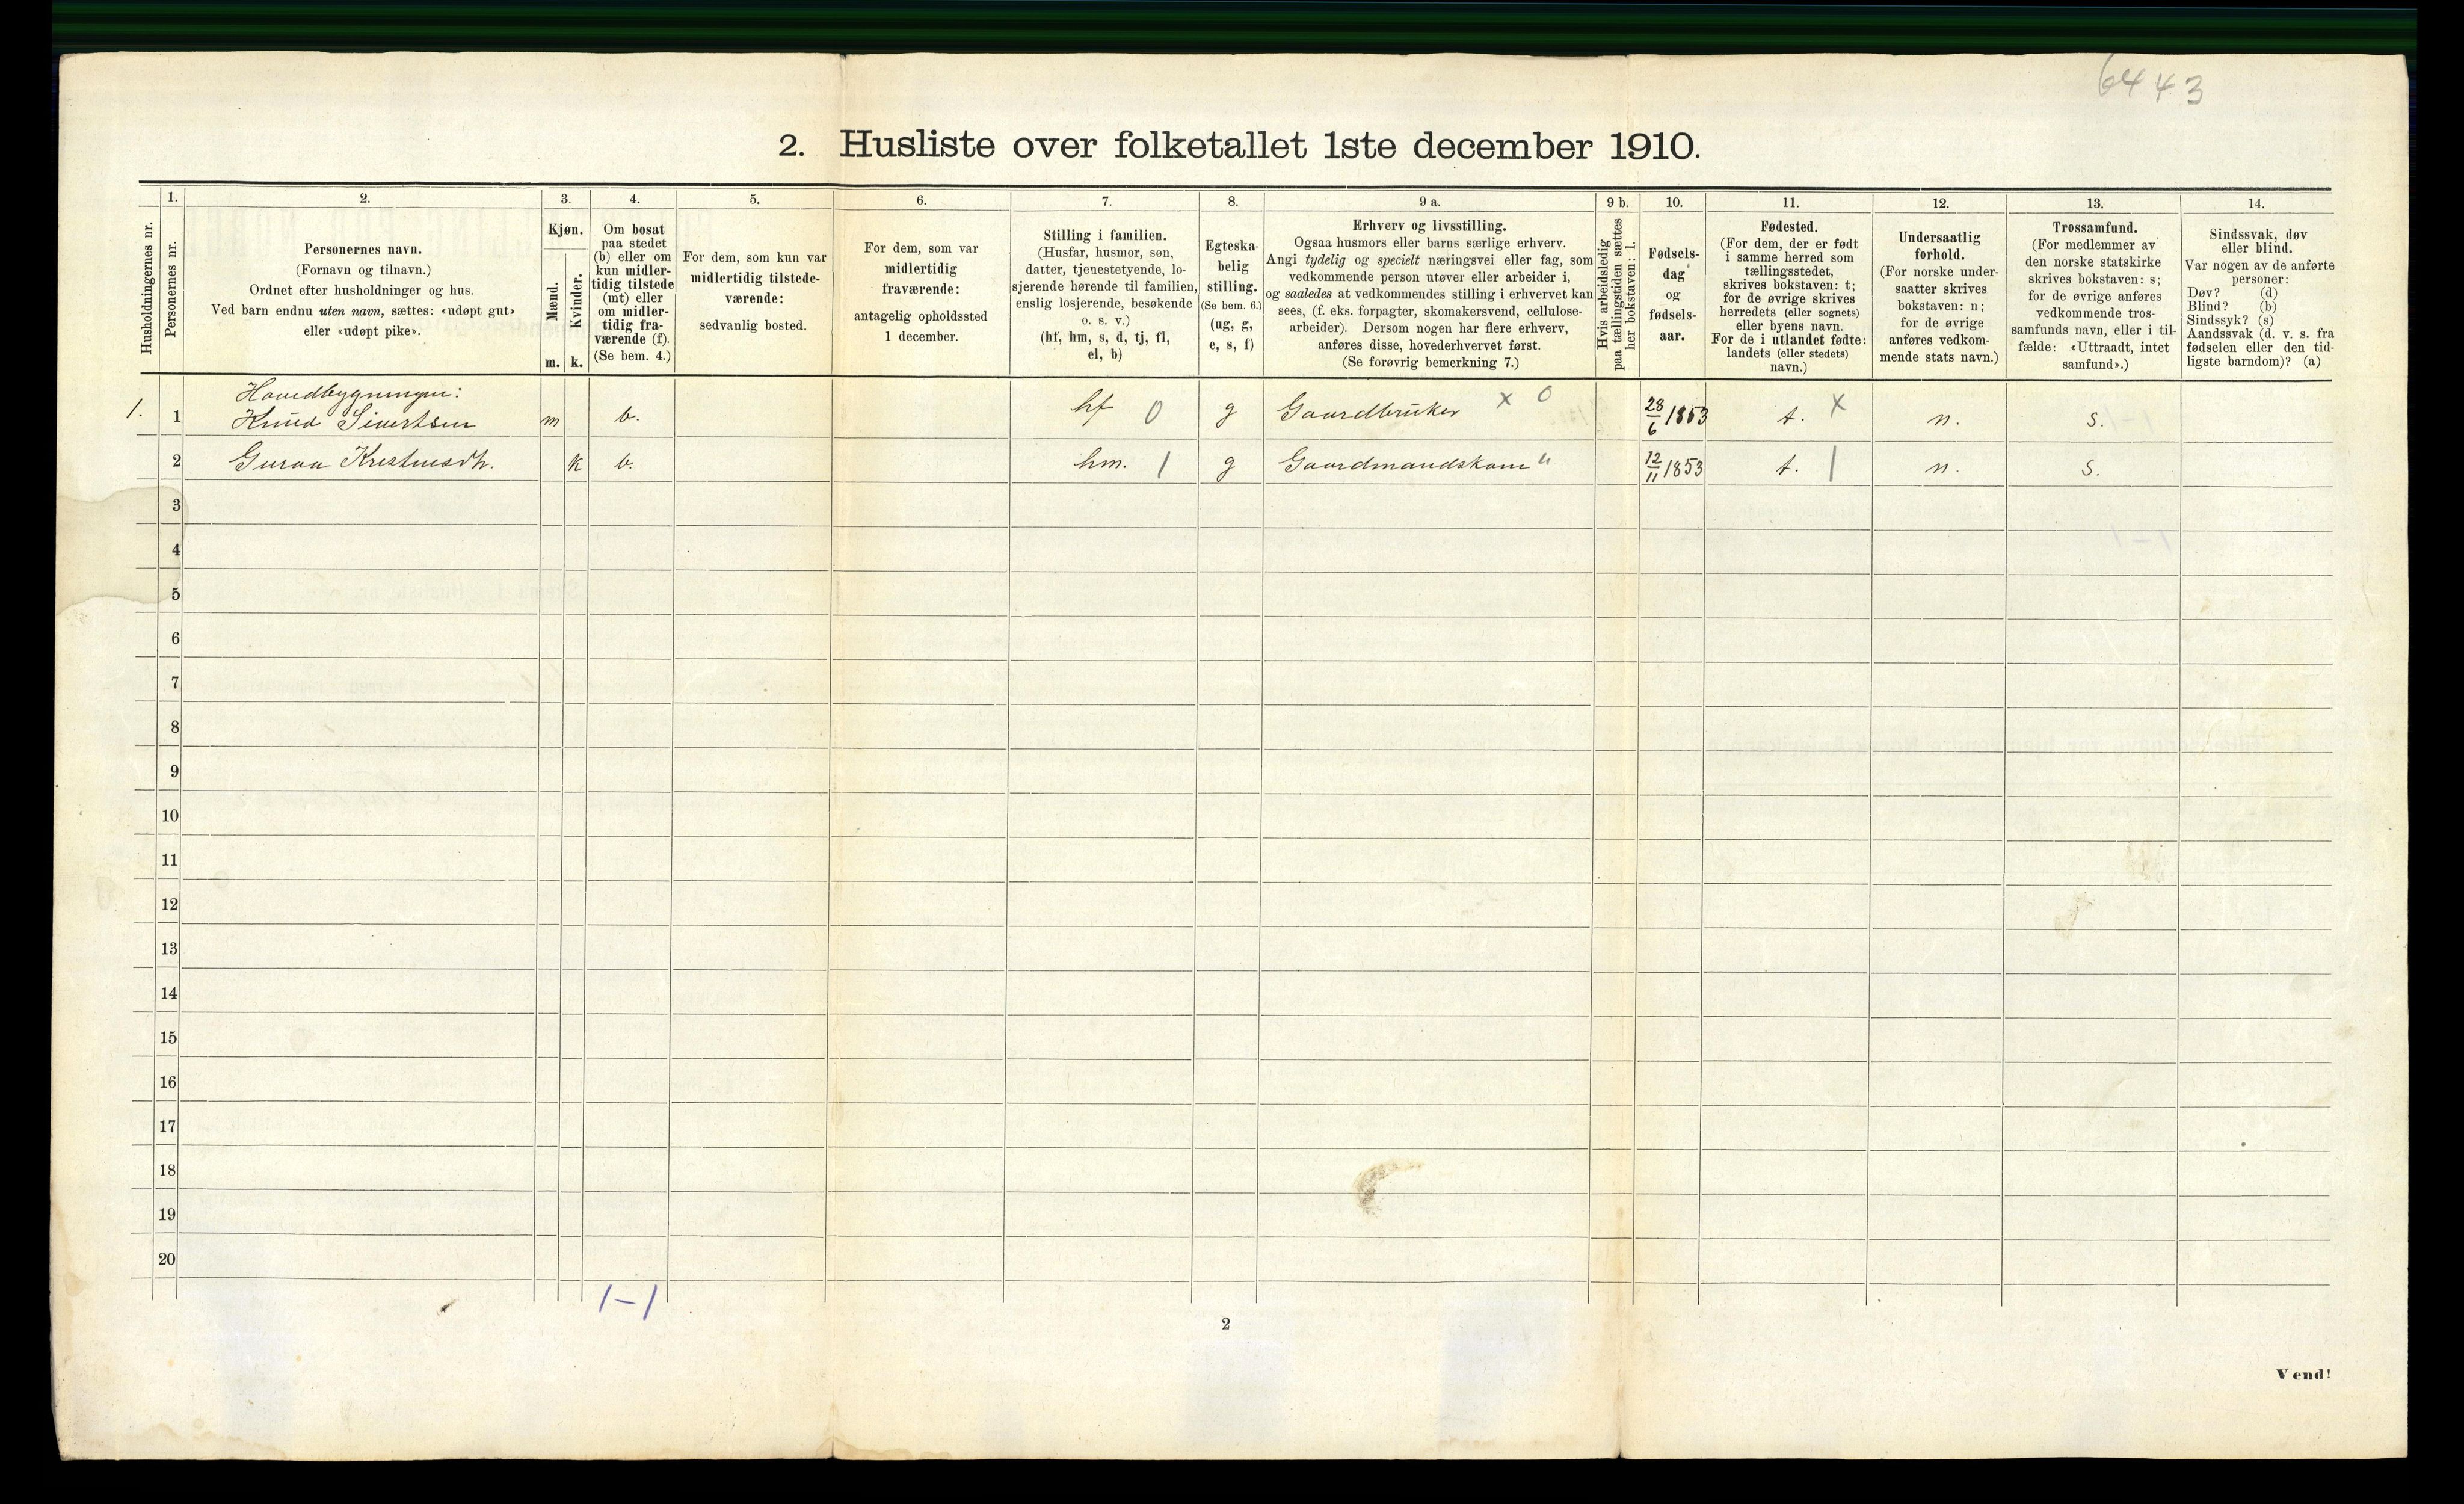 6443
2. Husliste over folketallet 1ste december 1910.
1. 2. 3. 4. 5. 6. 7. 8. 9 a. 9 b. 10. 11. 12. 13. 14.
Husholdningernes nr.
Personernes nr.
Personernes navn.
(Fornavn og tilnavn.)
Ordnet efter husholdninger og hus.
Ved barn endnu uten navn, sættes: «udøpt gut»
eller «udøpt pike».
Kjøn.
Mænd.
Kvinder.
m. k.
Om bosat
paa stedet
(b) eller om
kun midler-
tidig tilstede
(mt) eller
om midler-
tidig fra-
værende (f).
(Se bem. 4.)
For dem, som kun var
midlertidig tilstede-
værende:
sedvanlig bosted.
For dem, som var
midlertidig
fraværende:
antagelig opholdssted
1 december.
Stilling i familien.
(Husfar, husmor, søn,
datter, tjenestetyende, lo-
sjerende hørende til familien,
enslig losjerende, besøkende
o. s. v.)
(hf, hm, s, d, tj, fl,
el, b)
Egteska-
belig
stilling.
(Se bem. 6.)
(ug, g,
e, s, f)
Erhverv og livsstilling.
Ogsaa husmors eller barns særlige erhverv.
Angi tydelig og specielt næringsvei eller fag, som
vedkommende person utøver eller arbeider i,
og saaledes at vedkommendes stilling i erhvervet kan
sees, (f. eks. forpagter, skomakersvend, cellulose-
arbeider). Dersom nogen har flere erhverv,
anføres disse, hovederhvervet først.
(Se forøvrig bemerkning 7.)
Hvis arbeidsledig
paa tællingstiden sættes
her bokstaven: l.
Fødsels-
dag
og
fødsels-
aar.
Fødested.
(For dem, der er født
i samme herred som
tællingsstedet,
skrives bokstaven: t;
for de øvrige skrives
herredets (eller sognets)
eller byens navn.
For de i utlandet fødte:
landets (eller stedets)
navn.)
Undersaatlig
forhold.
(For norske under-
saatter skrives
bokstaven: n;
for de øvrige
anføres vedkom-
mende stats navn.)
Trossamfund.
(For medlemmer av
den norske statskirke
skrives bokstaven: s;
for de øvrige anføres
vedkommende tros-
samfunds navn, eller i til-
fælde: «Uttraadt, intet
samfund».)
Sindssvak, døv
eller blind.
Var nogen av de anførte
personer:
Døv? (d)
Blind? (b)
Sindssyk? (s)
Aandssvak (d. v. s. fra
fødselen eller den tid-
ligste barndom)? (a)
Hovedbygningen:
1. 1 Knud Sivertsen m b. hf 0 g Gaardbruker x 0 28/6 1853 t. x n. s.
2 Guraa Krestnesdt. k b. hm. 1 g Gaardmandskone " 12/11 1853 t. 1 n. s.
3
4
5
6
7
8
9
10
11
12
13
14
15
16
17
18
19
20
1-1
2
Vend!